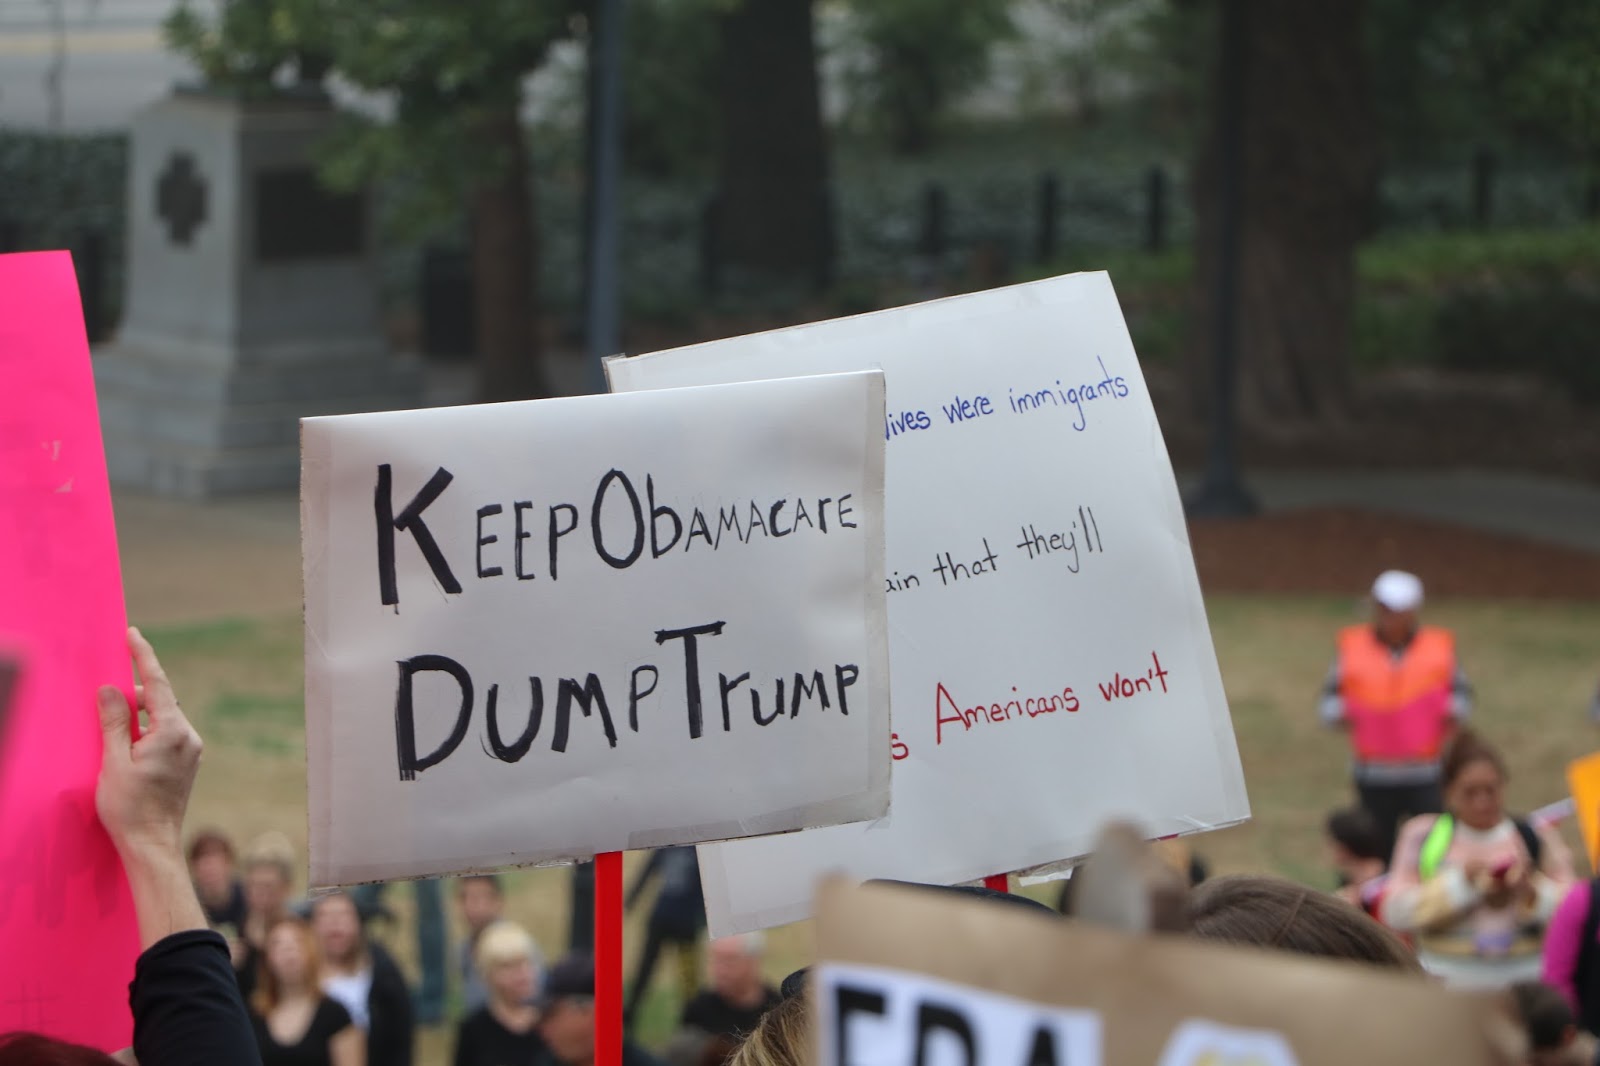 Keep Obamacare
Dump Trump
wives were immigrants
that they'll
Americans won't